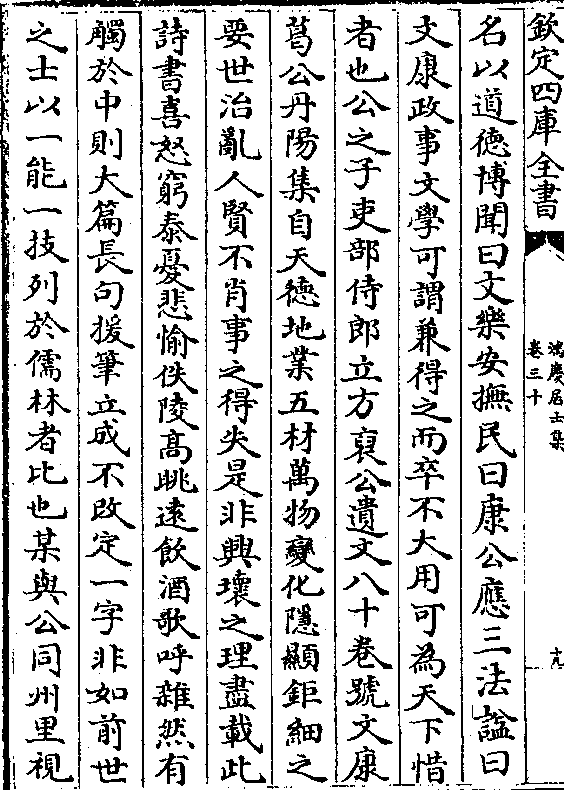 欽定四庫全書
鴻慶居士集
卷三十
十九
名以道德博聞曰文樂安撫民曰康公應三法諡曰
文康政事文學可謂兼得之而卒不大用可為天下惜
者也公之子吏部侍郎立方裒公遺文八十卷號文康
葛公丹陽集自天德地業五材萬物變化隱顯鉅細之
要世治亂人賢不肖事之得失是非興壞之理盡載此
詩書喜怒窮泰憂悲愉佚陵高眺遠飲酒歌呼雜然有
觸於中則大篇長句援筆立成不改定一字非如前世
之士以一能一技列於儒林者比也某與公同州里視